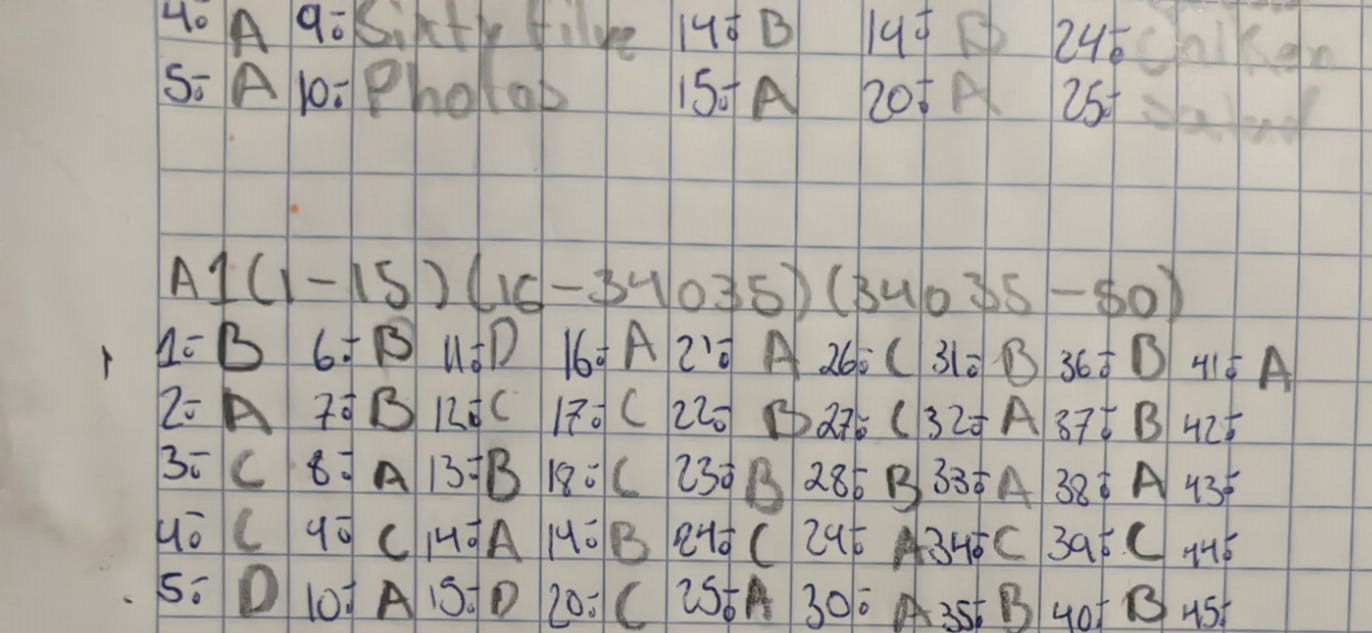 4: A 9: Sixty filve 14: B 14: B 24:
5: A 10: Photos 15: A 20: A 25:
A1(1-15)(16-34035)(34035-50)
1: B 6: B 11: D 16: A 21: A 26: C 31: B 36: B 41: A
2: A 7: B 12: C 17: C 22: B 27: C 32: A 37: B 42:
3: C 8: A 13: B 18: C 23: B 28: B 33: A 38: A 43:
4: C 9: C 14: A 19: B 24: C 29: A 34: C 39: C 44:
5: D 10: A 15: D 20: C 25: A 30: A 35: B 40: B 45: